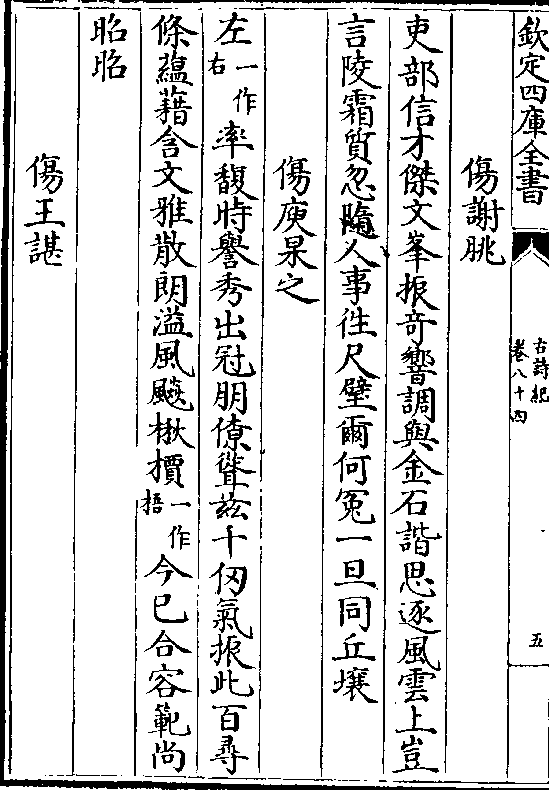 欽定四庫全書
古詩紀
卷八十四
五
傷謝朓
吏部信才傑文峯振奇響調與金石諧思逐風雲上豈
言陵霜質忽隨人事徃尺璧爾何冤一旦同丘壤
傷庾杲之
左一作右率馥時譽秀出冠朋僚聳茲千仞氣振此百尋
條蘊藉含文雅散朗溢風飈楸檟一作梧今已合容範尚
昭昭
傷王諶